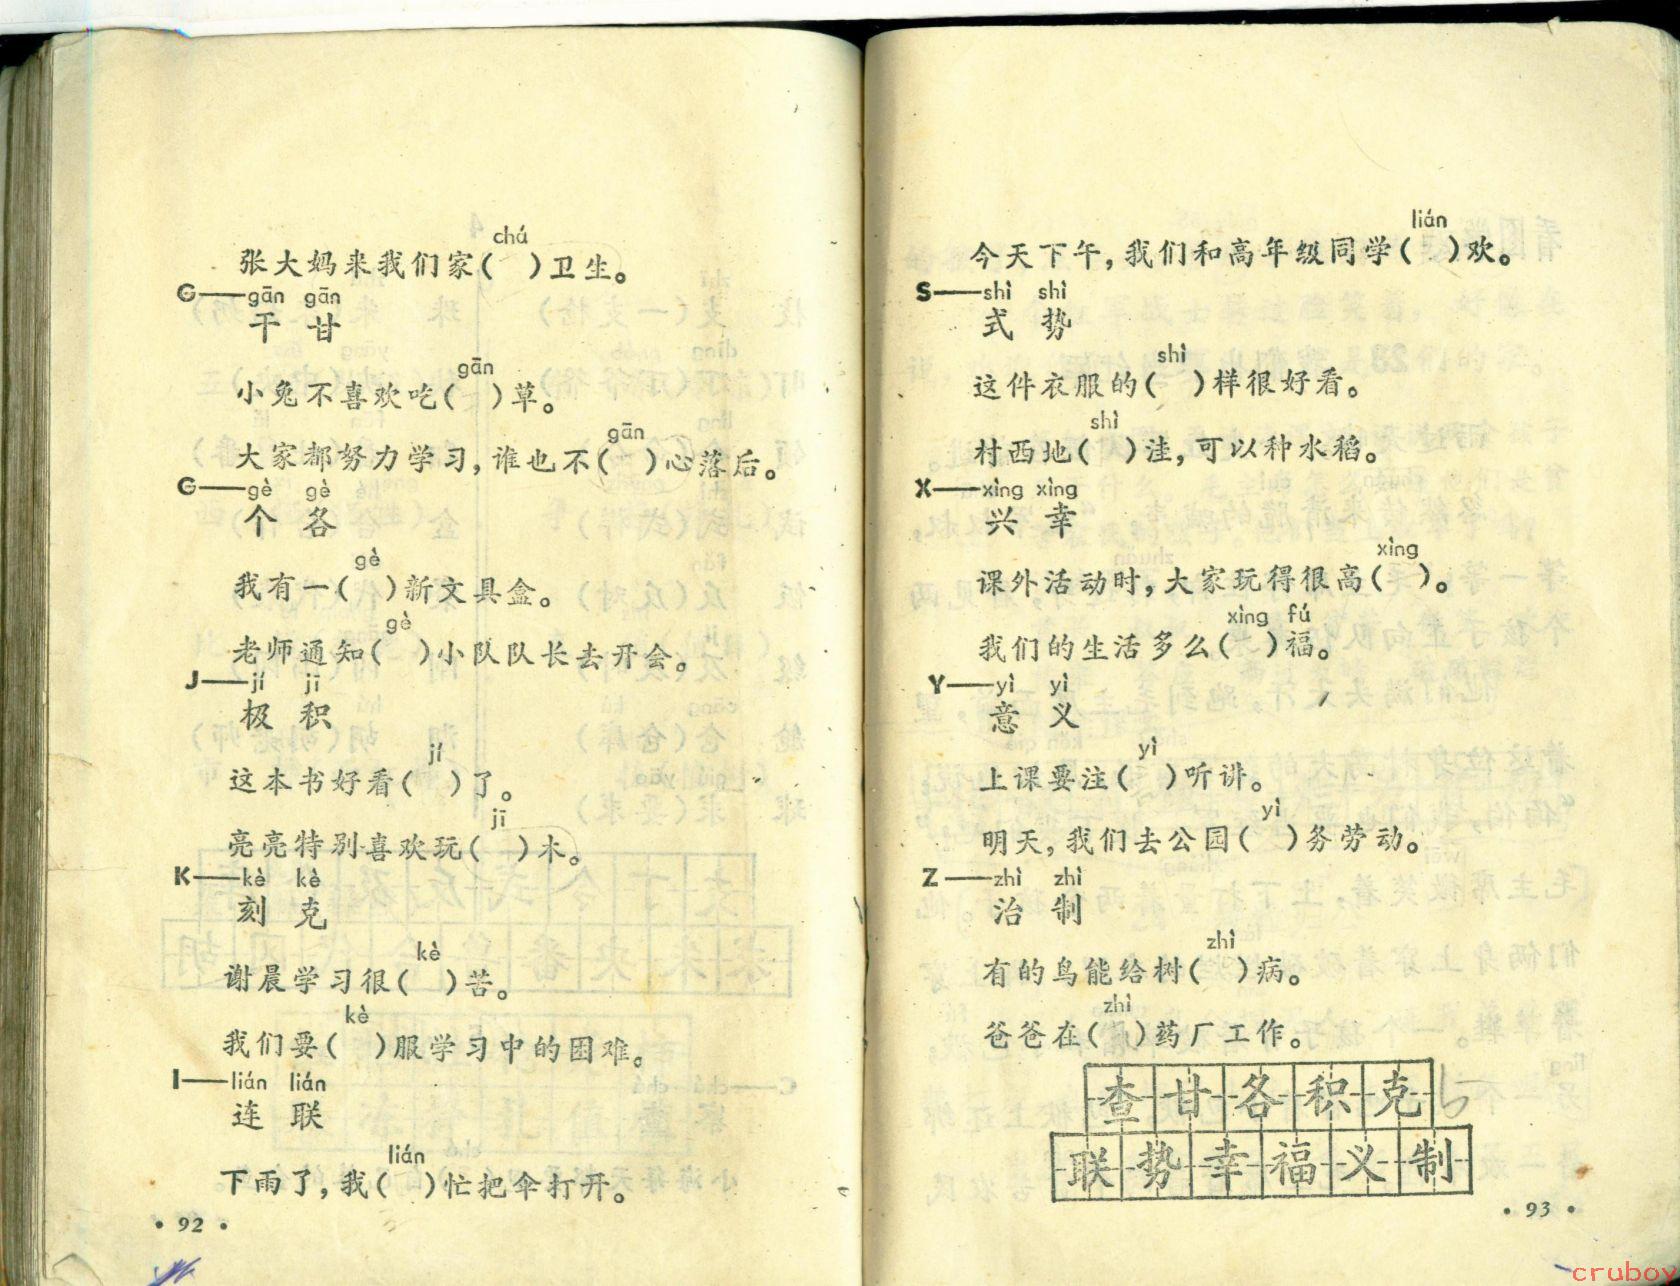 chá
张大妈来我们家(  )卫生。
G——gān gān
干 甘
gān
小兔不喜欢吃(  )草。
gān
大家都努力学习,谁也不(  )心落后。
G——gè gè
个 各
gè
我有一(  )新文具盒。
gè
老师通知(  )小队队长去开会。
J——jí jī
极 积
jí
这本书好看(  )了。
jī
亮亮特别喜欢玩(  )木。
K——kè kè
刻 克
kè
谢晨学习很(  )苦。
kè
我们要(  )服学习中的困难。
l——lián lián
连 联
lián
下雨了,我(  )忙把伞打开。
• 92 •
lián
今天下午,我们和高年级同学(  )欢。
S——shì shì
式 势
shì
这件衣服的(  )样很好看。
shì
村西地(  )洼,可以种水稻。
X——xìng xìng
兴 幸
xìng
课外活动时,大家玩得很高(  )。
xìng fú
我们的生活多么(  )福。
Y——yì yì
意 义
yì
上课要注(  )听讲。
yì
明天,我们去公园(  )务劳动。
Z——zhì zhì
治 制
zhì
有的鸟能给树(  )病。
zhì
爸爸在(  )药厂工作。
查甘各积克
联势幸福义制
• 93 •
cruboy